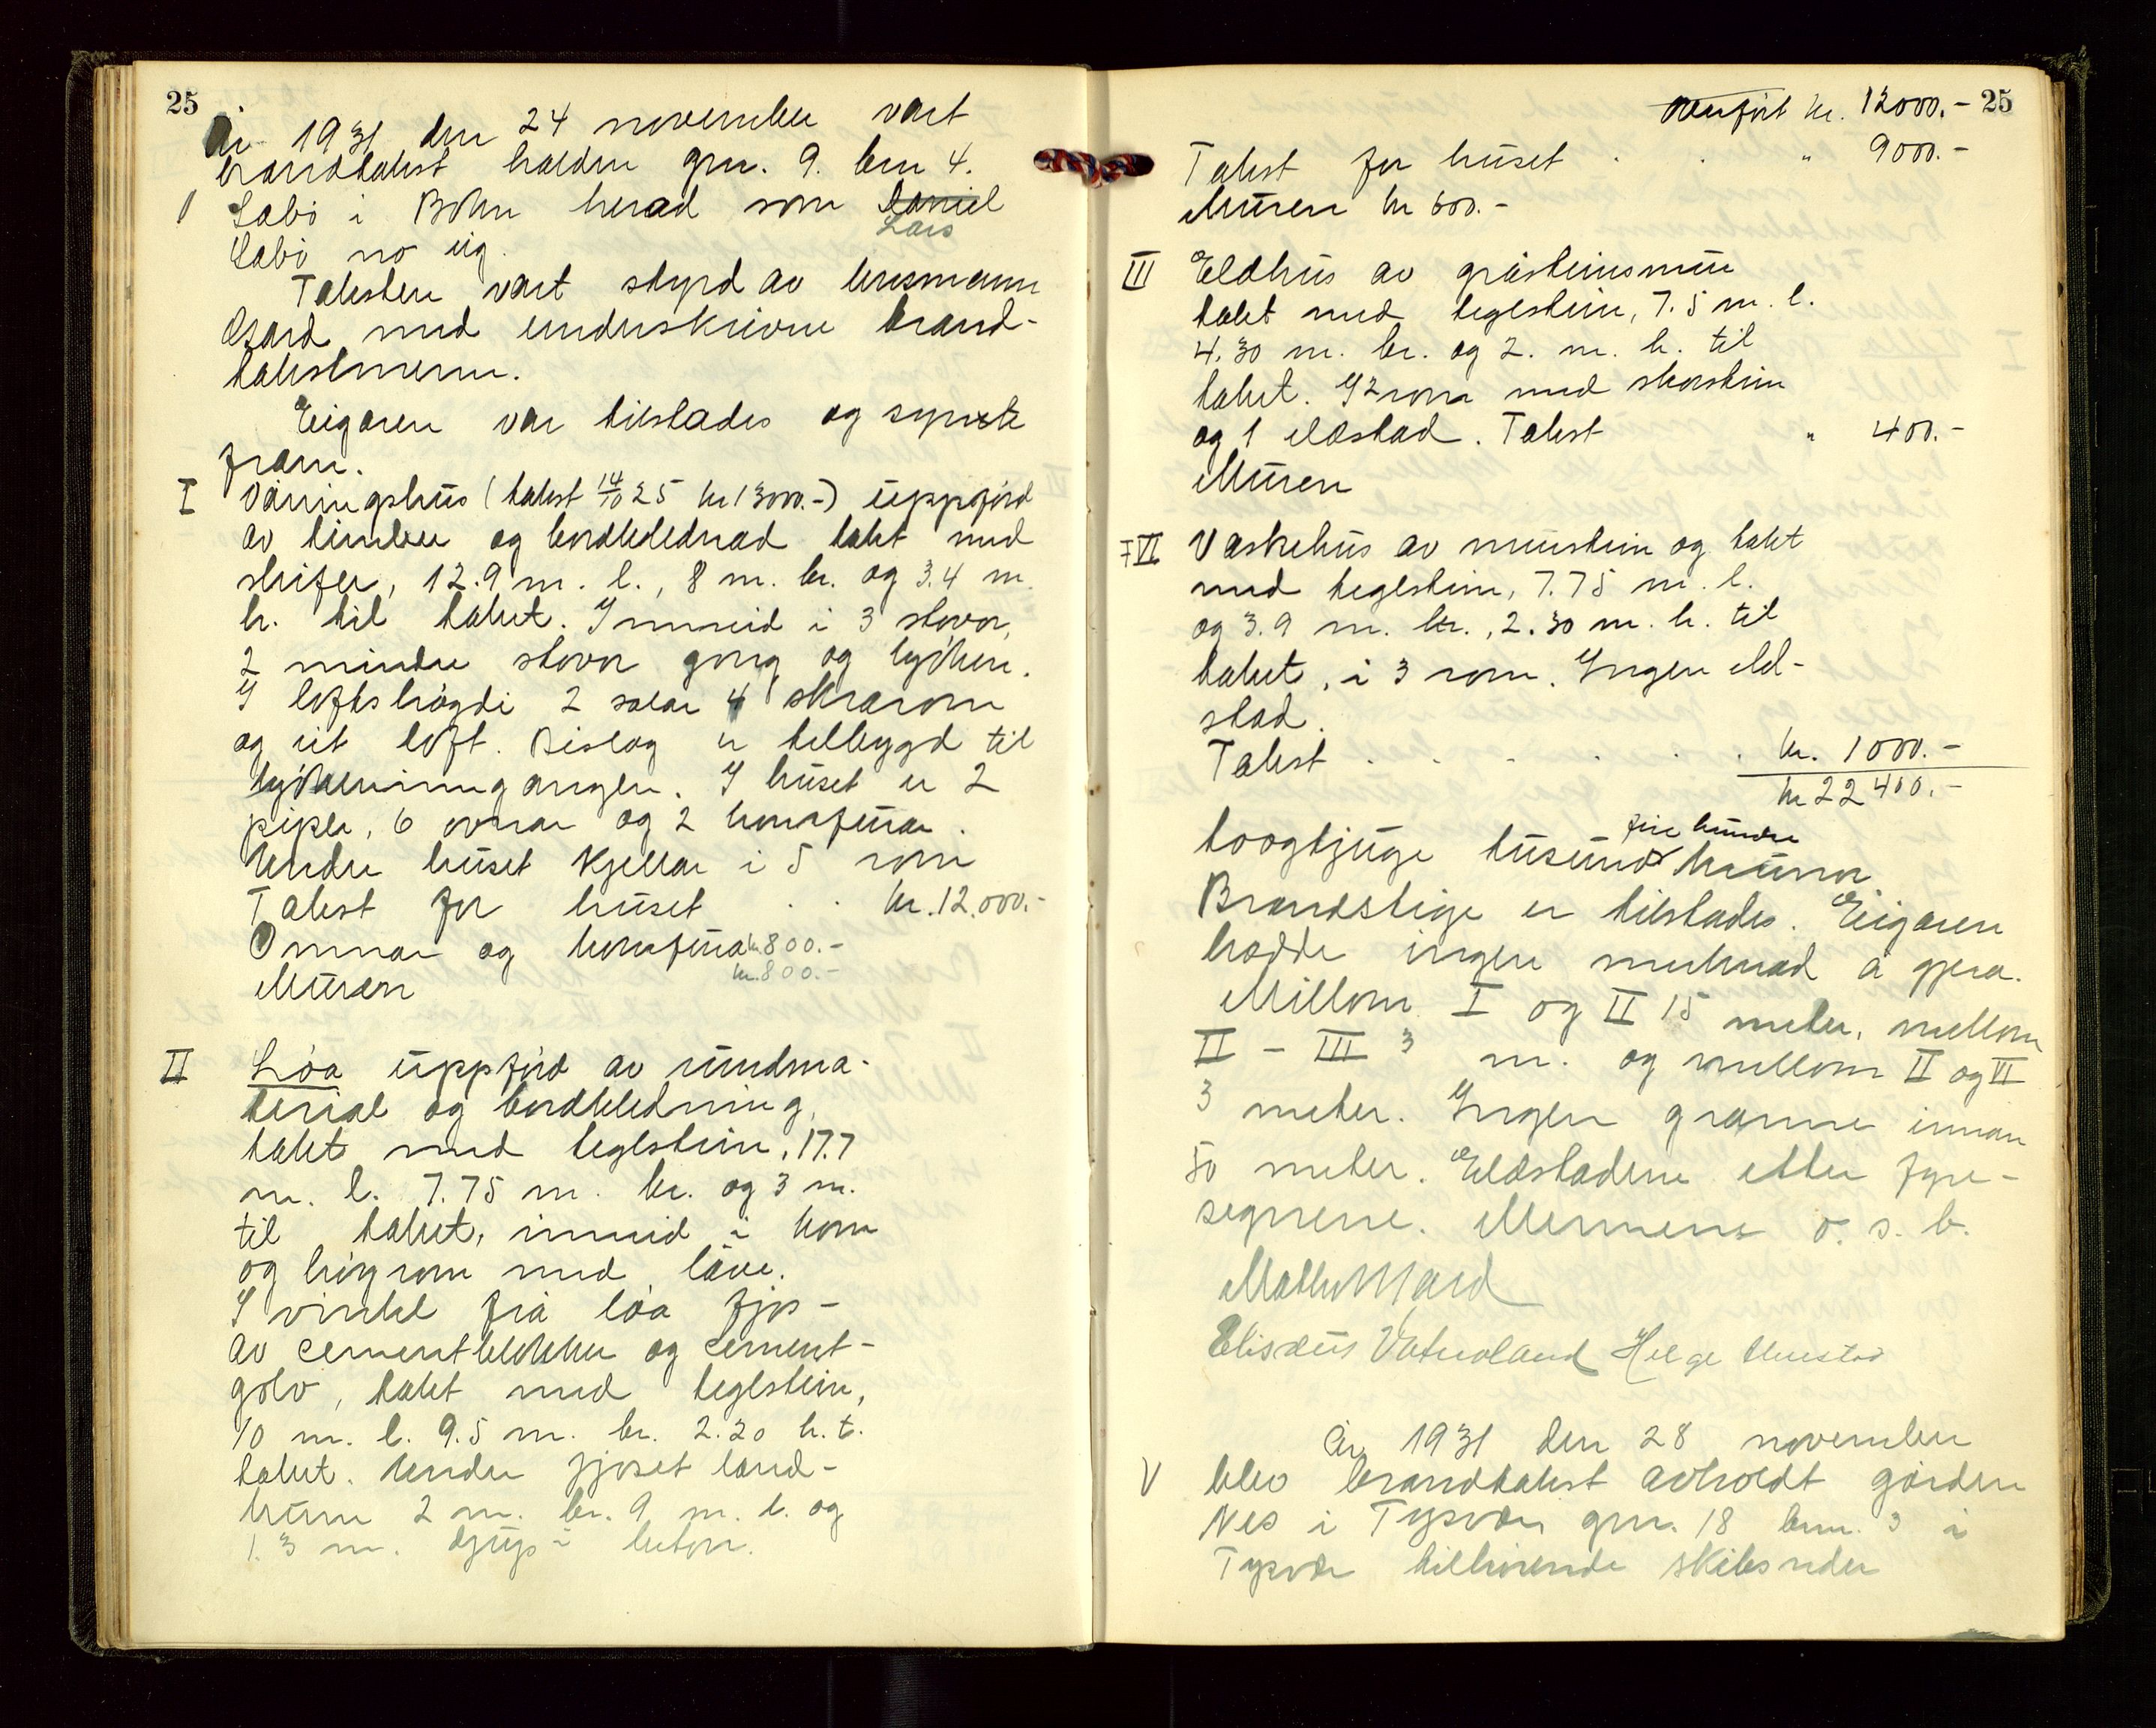 25
År 1931 den 24 november vart
brandtakst halden gnr. 9. bnr 4.
Løbø i Bokn herad som Daniel
Lars
Løbø no eig.
Taksten vart styrd av lensmann
Aard med underskrivne brand-
takstmenn.
Eigaren var tilstades og synte
fram.
I Våningshus (takst 14/10 25 kr 13000.-) uppførd
av timber og bordklednad takt med
skifer, 12.9 m. l., 8 m. br. og 3.4 m.
h. til taket. Innreid i 3 stovor,
2 mindre stovor gong og kjøken.
I loftshøgdi 2 salar 4 skrarom
og eit loft. Bislag er tilbygd til
kjøkeninngangen. I huset er 2
piper, 6 ovnar og 2 komfurar.
Under huset kjellar i 5 rom
Takst for huset . . kr. 12.000.-
Omnar og komfurar kr. 800.-
Muren kr. 800.-
II Løa uppførd av rundma-
terial og bordkledning,
takt med teglstein, 17.7
m. l. 7.75 m. br. og 3 m.
til taket, innreid i korn
og høyrom med låve.
I vinkel frå løa fjos -
av cementblokker og cement-
golv, takt med teglstein,
10 m. l. 9.5 m. br. 2.20 h. t.
taket. Under fjoset land-
kum 2 m. br. 9 m. l. og
1.3 m. djup i beton.
Overført kr. 12000.- 25
Takst for huset . . " 9000.-
Muren kr 600.-
III Eldhus av gråsteinsmur
takt med teglstein, 7.5 m. l.
4.30 m. br. og 2. m. h. til
taket. I 2 rom med skorstein
og 1 eldstad. Takst " 400.-
Muren
VI Vaskehus av murstein og takt
med teglstein, 7.75 m. l.
og 3.9 m. br., 2.30 m. h. til
taket, i 3 rom. Ingen eld-
stad.
Takst . . . . . . kr. 1000.-
kr 22400.-
fire hundre
toogtjuge tusund kronor
Brandstige er tilstades. Eigaren
hadde ingen merknad å gjera.
Millom I og II 15 meter, mellom
II - III 3 m. og mellom II og VI
3 meter. Ingen granne innan
50 meter. Eldstadene etter fyre-
segnene. Mennene o. s. b.
Elisæus Vatnaland Helge
År 1931 den 28 november
V blev brandtakst avholdt gården
Nes i Tysvær gnr. 18 bnr. 3 i
Tysvær tilhørende skibsreder